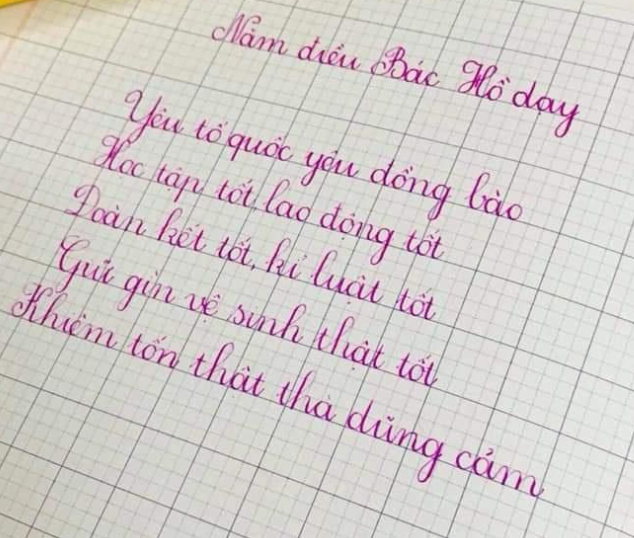 Năm điều Bác Hồ dạy
Yêu tổ quốc yêu đồng bào
Học tập tốt, lao động tốt
Đoàn kết tốt, kỉ luật tốt
Giữ gìn vệ sinh thật tốt
Khiêm tốn thật thà dũng cảm